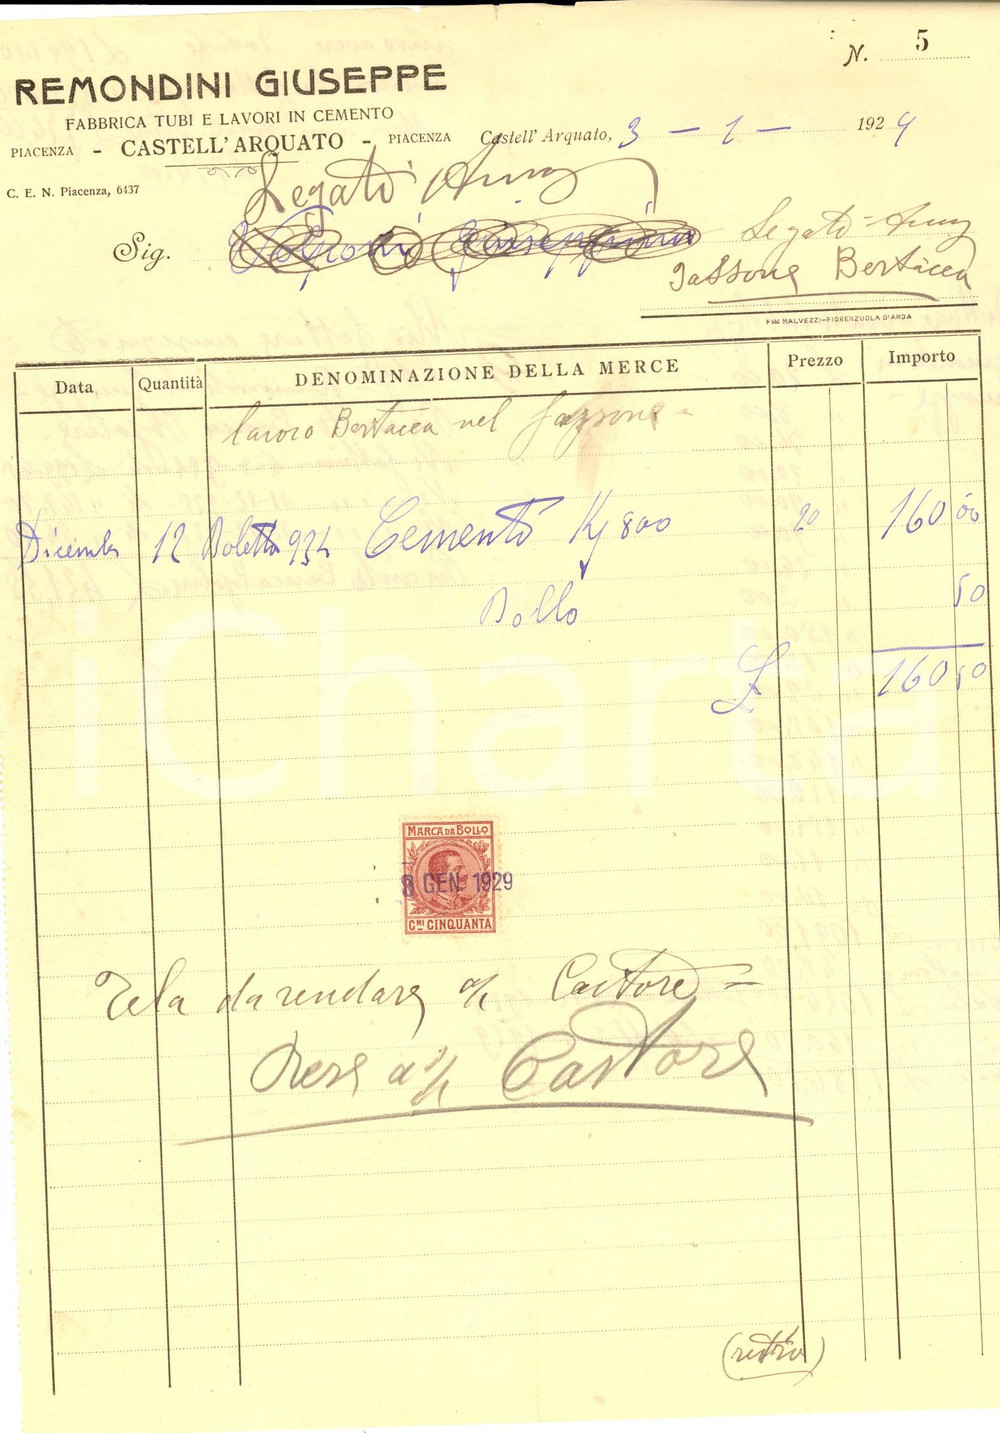 N. 5
REMONDINI GIUSEPPE
FABBRICA TUBI E LAVORI IN CEMENTO
PIACENZA - CASTELL'ARQUATO - PIACENZA
Castell' Arquato, 3 - 1 - 1929
C. E. N. Piacenza, 6437
Legato
Sig.
Legato
Bertacca
MALVEZZI-FIORENZUOLA D'ARDA
Data Quantità DENOMINAZIONE DELLA MERCE Prezzo Importo
lavoro Bertacca nel
Dicembre 12 Boletta 934 Cemento Kg 800 20 160 00
Bollo 50
£ 160 50
iCharta
MARCA DA BOLLO
8 GEN. 1929
CMI CINQUANTA
Tela da rendare a/c Castore =
Rese a/c Castore
(retro)